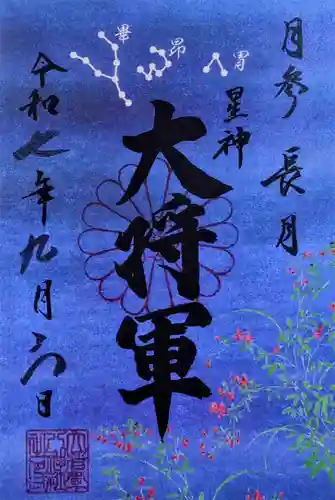 月参 長月
胃
昴
畢
星神
大将軍
令和七年九月六日